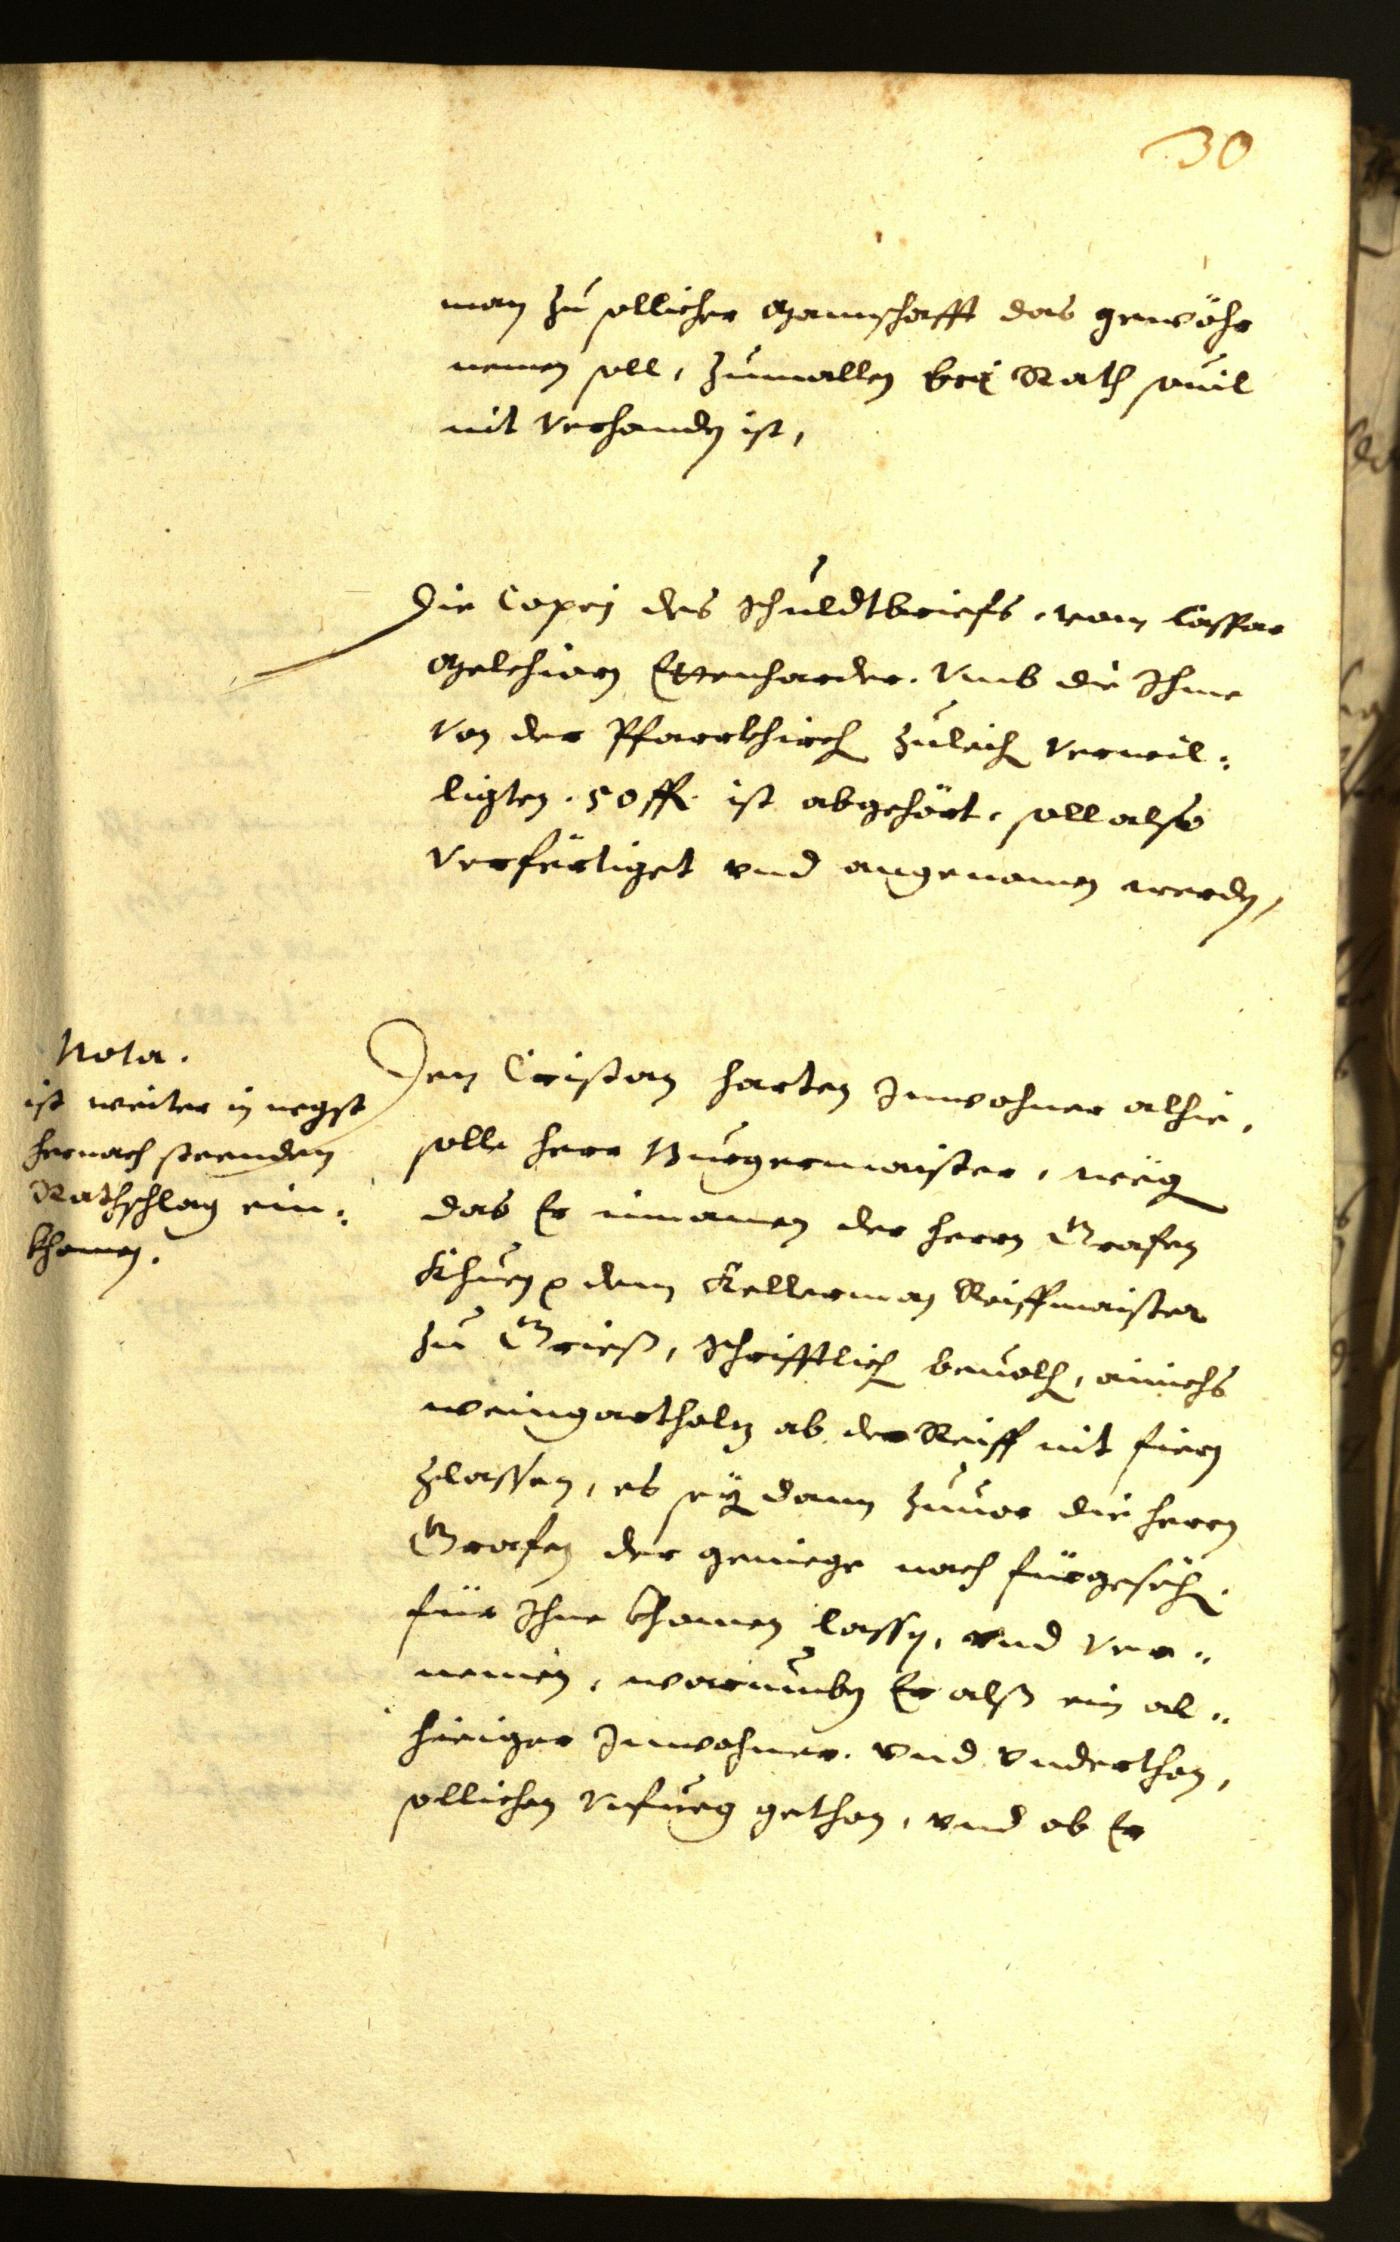 30
man zu sollicher Manschafft das gewöhr
nemen soll, zumallen bei Rath souil
nit verhanden ist,
Die Copej des Schuldtbriefs, vom Casspar
Melchiorn Ettenharder. vmb die Ihme
von der Pfarrkhirch zuleich verwil:
ligten. 50 ff. ist abgehört, soll also
verfertiget vnd angenomen werden,
Nota.
ist weiter in negst
hernach steenden
Rathschlag ein:
khomen.
Den Cristan harten Inwohner alhie,
solle herr Burgermaister, weig
das Er innamen der herrn Grafen
Khuen dem Kellerman Reiffmaister
zu Grieß, schrifftlich beuolh, ainichs
weingartholz ab der Reiff nit füern
zlassen, es seÿ dann zuuor die herrn
Grafen der genüege nach fürgeseh,
für Ihne khomen lassen, vnd ver„
nemen, warumben Er alß ein al„
hieiger Inwohner. vnd vnderthon,
sollichen vnfueg gethon, vnd ob Er